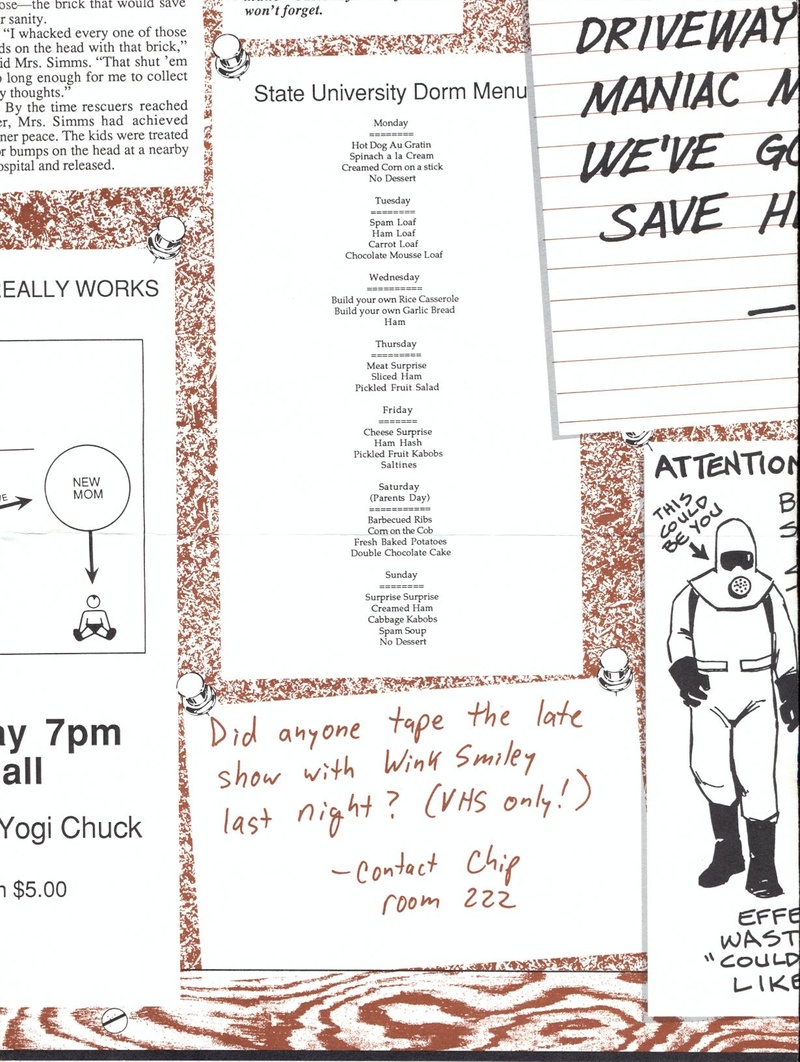 ose—the brick that would save
r sanity.
"I whacked every one of those
ds on the head with that brick,"
id Mrs. Simms. "That shut 'em
o long enough for me to collect
y thoughts."
By the time rescuers reached
er, Mrs. Simms had achieved
ner peace. The kids were treated
or bumps on the head at a nearby
ospital and released.
won't forget.
EALLY WORKS
NEW
MOM
ay 7pm
all
Yogi Chuck
$5.00
State University Dorm Menu
Monday
========
Hot Dog Au Gratin
Spinach a la Cream
Creamed Corn on a stick
No Dessert
Tuesday
========
Spam Loaf
Ham Loaf
Carrot Loaf
Chocolate Mousse Loaf
Wednesday
==========
Build your own Rice Casserole
Build your own Garlic Bread
Ham
Thursday
=========
Meat Surprise
Sliced Ham
Pickled Fruit Salad
Friday
=======
Cheese Surprise
Ham Hash
Pickled Fruit Kabobs
Saltines
Saturday
(Parents Day)
===========
Barbecued Ribs
Corn on the Cob
Fresh Baked Potatoes
Double Chocolate Cake
Sunday
========
Surprise Surprise
Creamed Ham
Cabbage Kabobs
Spam Soup
No Dessert
Did anyone tape the late
show with Wink Smiley
last night? (VHS only!)
-Contact Chip
room 222
DRIVEWAY
MANIAC M
WE'VE GO
SAVE H
—
ATTENTION
THIS
COULD
BE YOU
B
S
EFFE
WAST
"COULD
LIKE